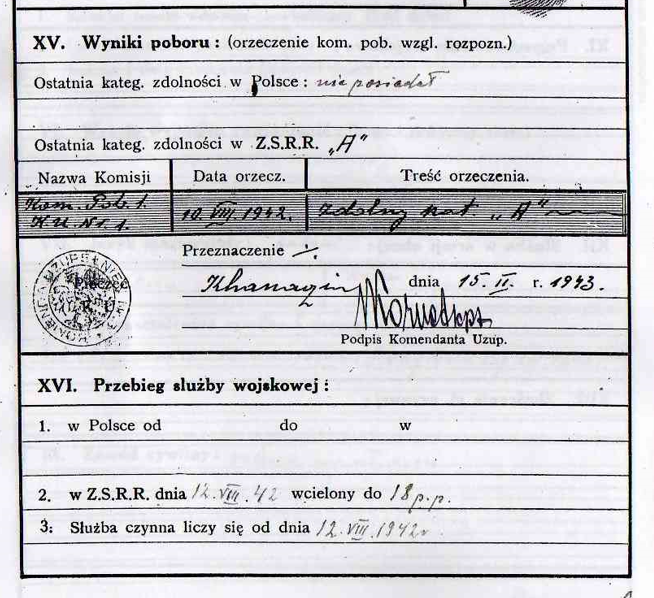 XV. Wyniki poboru : (orzeczenie kom. pob. wzgl. rozpozn.)
Ostatnia kateg. zdolności w Polsce : nie posiadał
Ostatnia kateg. zdolności w Z.S.R.R. „A"
Nazwa Komisji Data orzecz. Treść orzeczenia.
Kom. Pob. 1.
K.U. Nr. 1. 10. VIII. 1942. zdolny kat „A"
Przeznaczenie
Pieczęć
K. U.
Khanaqin dnia 15. II. r. 1943.
Podpis Komendanta Uzup.
XVI. Przebieg służby wojskowej :
1. w Polsce od do w
2. w Z.S.R.R. dnia 12. VIII. 42 wcielony do 18 p.p.
3: Służba czynna liczy się od dnia 12. VIII. 1942r